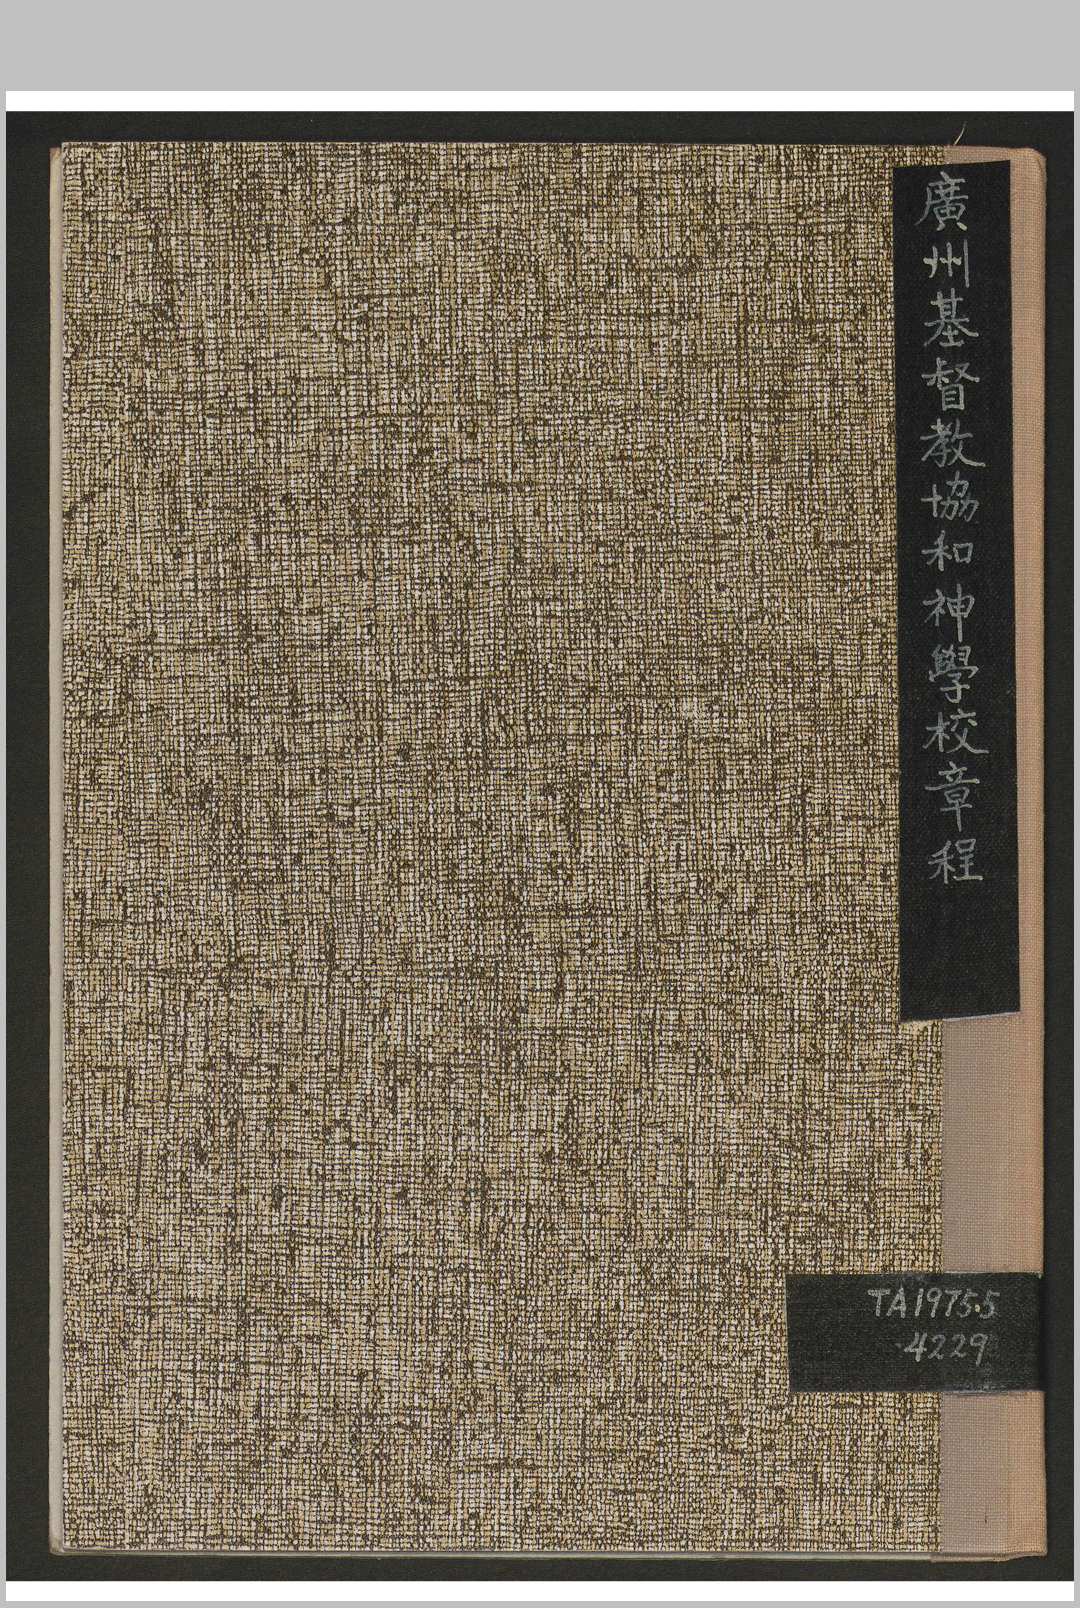 廣州基督教協和神學校章程
TA1975.5
4229